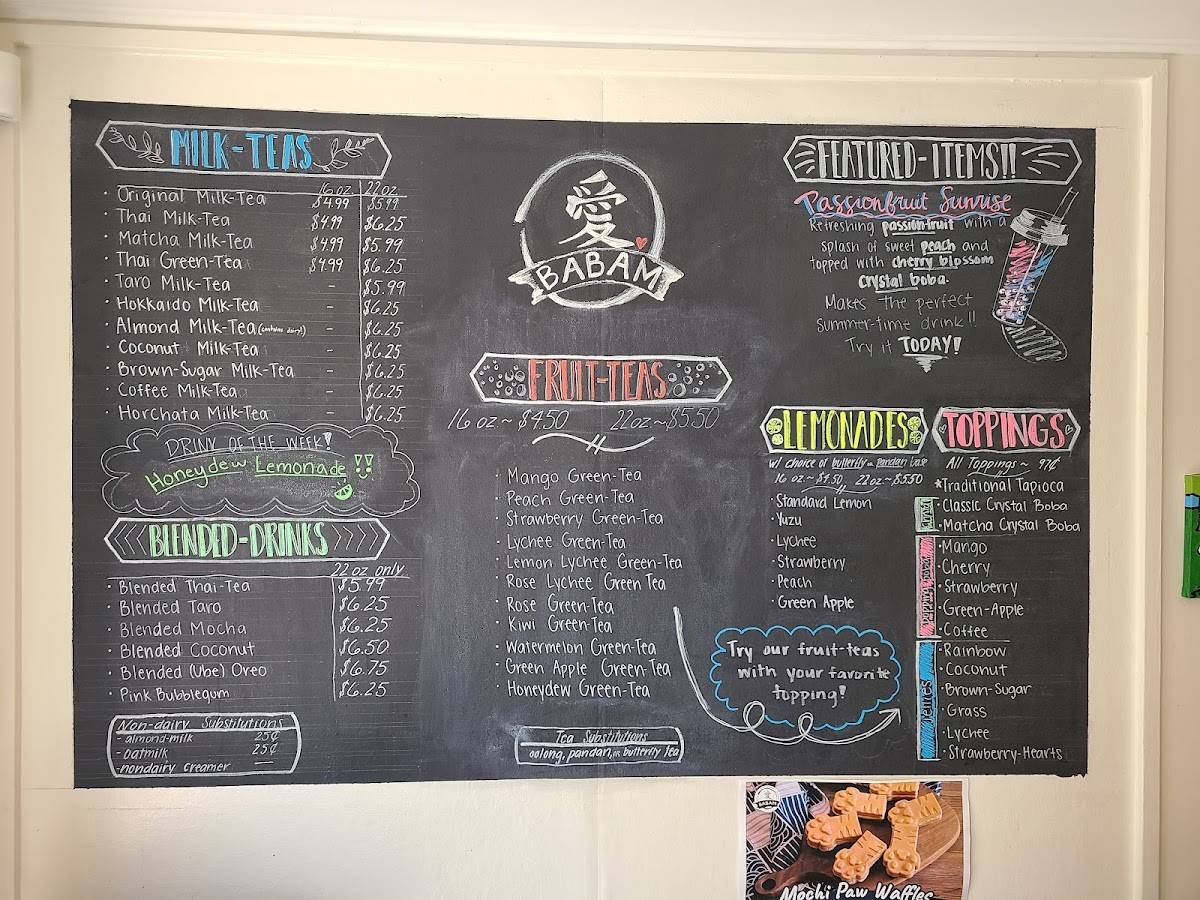 MILK-TEAS
16 oz 22 oz
· Original Milk-Tea $4.99 $5.99
· Thai Milk-Tea $4.99 $6.25
· Matcha Milk-Tea $4.99 $5.99
· Thai Green-Tea $4.99 $6.25
· Taro Milk-Tea - $5.99
· Hokkaido Milk-Tea - $6.25
· Almond Milk-Tea (contains dairy!) - $6.25
· Coconut Milk-Tea - $6.25
· Brown-Sugar Milk-Tea - $6.25
· Coffee Milk-Tea - $6.25
· Horchata Milk-Tea - $6.25
DRINK OF THE WEEK!
Honeydew Lemonade!!
BLENDED-DRINKS
22 oz only
· Blended Thai-Tea $5.99
· Blended Taro $6.25
· Blended Mocha $6.25
· Blended Coconut $6.50
· Blended (Ube) Oreo $6.75
· Pink Bubblegum $6.25
Non-dairy Substitutions
-almond-milk 25¢
-oatmilk 25¢
-nondairy creamer —
愛
BABAM
FRUIT-TEAS
16 oz ~ $4.50 22oz ~ $5.50
· Mango Green-Tea
· Peach Green-Tea
· Strawberry Green-Tea
· Lychee Green-Tea
· Lemon Lychee Green-Tea
· Rose Lychee Green Tea
· Rose Green-Tea
· Kiwi Green-Tea
· Watermelon Green-Tea
· Green Apple Green-Tea
· Honeydew Green-Tea
Tea Substitutions
oolong, pandan, or butterfly tea
FEATURED-ITEMS!!
Passionfruit Sunrise
Refreshing passionfruit with a
splash of sweet peach and
topped with cherry blossom
crystal boba.
Makes the perfect
summer-time drink!!
Try it TODAY!
LEMONADES
w/ choice of butterfly or pandan base
16 oz ~ $4.50 22oz ~ $5.50
· Standard Lemon
· Yuzu
· Lychee
· Strawberry
· Peach
· Green Apple
Try our fruit-teas
with your favorite
topping!
TOPPINGS
All Toppings ~ 97¢
*Traditional Tapioca
· Classic Crystal Boba
· Matcha Crystal Boba
Popping Boba
· Mango
· Cherry
· Strawberry
· Green-Apple
· Coffee
Jellies
· Rainbow
· Coconut
· Brown-Sugar
· Grass
· Lychee
· Strawberry-Hearts
BABAM
Mochi Paw Waffles